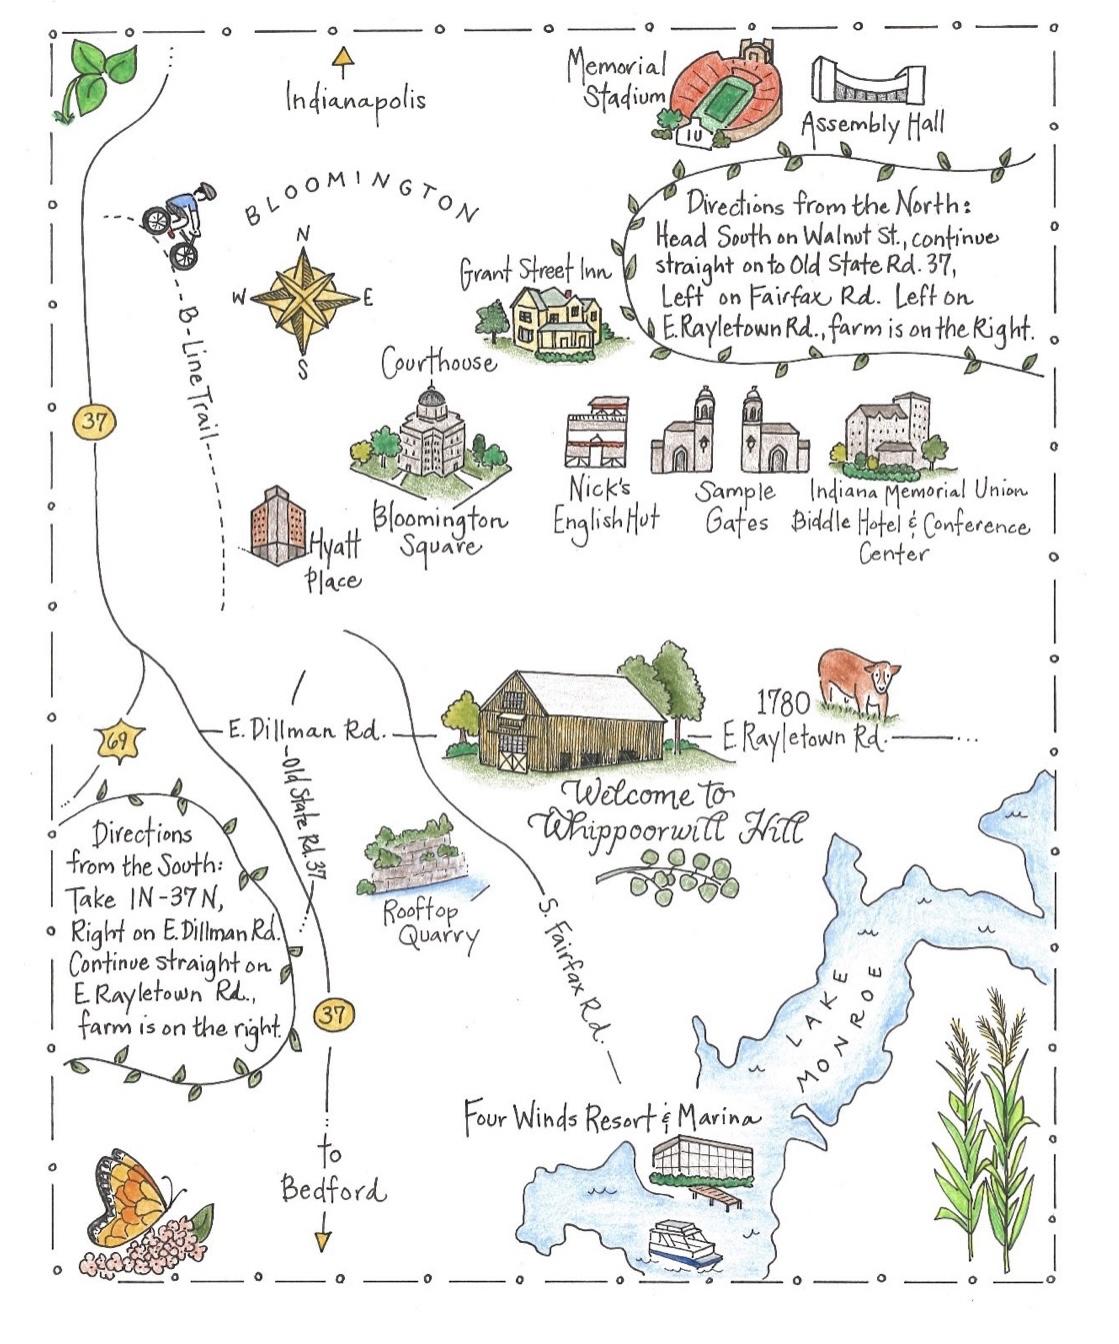 Indianapolis
Memorial
Stadium
IU
Assembly Hall
BLOOMINGTON
N
W
E
S
Directions from the North:
Head South on Walnut St., continue
straight on to Old State Rd. 37,
Left on Fairfax Rd. Left on
E. Rayletown Rd., farm is on the Right.
Grant Street Inn
Courthouse
B-Line Trail
37
Bloomington
Square
Nick's
English Hut
Sample
Gates
Indiana Memorial Union
Biddle Hotel & Conference
Center
Hyatt
Place
69
E. Dillman Rd.
1780
E. Rayletown Rd.
Old State Rd. 37
Welcome to
Whippoorwill Hill
Directions
from the South:
Take IN-37 N,
Right on E. Dillman Rd.
Continue straight on
E. Rayletown Rd.,
farm is on the right.
Rooftop
Quarry
S. Fairfax Rd.
LAKE
MONROE
37
Four Winds Resort & Marina
to
Bedford